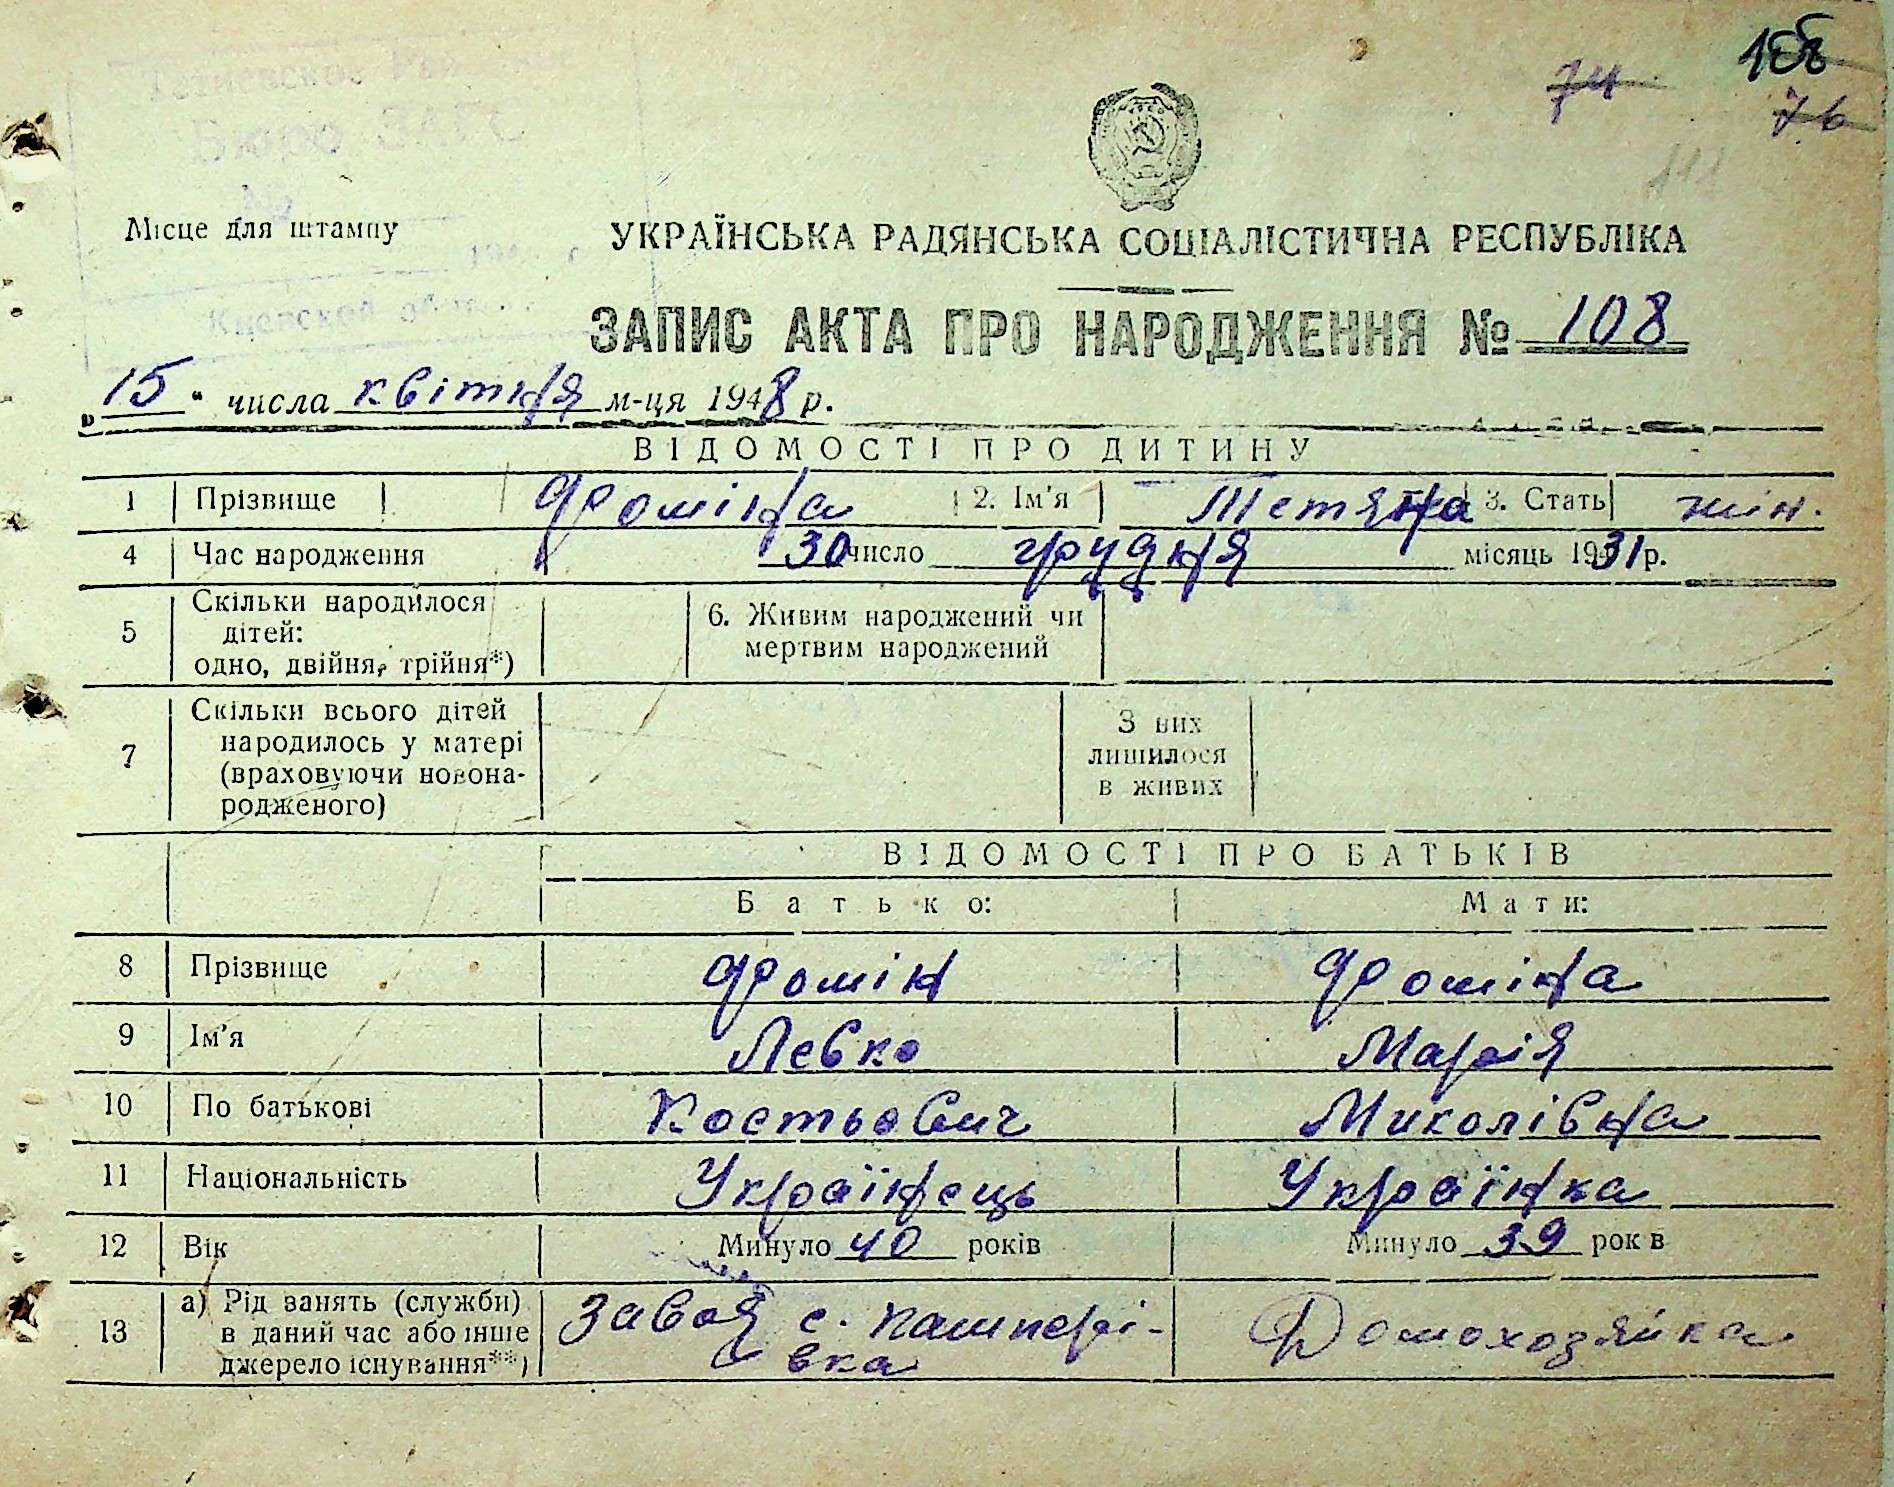 74
76
Бюро ЗАГС
№
Місце для штампу
Киевской
УКРАЇНСЬКА РАДЯНСЬКА СОЦІАЛІСТИЧНА РЕСПУБЛІКА
ЗАПИС АКТА ПРО НАРОДЖЕННЯ № 108
„15“ числа квітня м-ця 1948 р.
ВІДОМОСТІ ПРО ДИТИНУ
1 Прізвище Фоміна 2. Ім'я Тетяна 3. Стать жін.
4 Час народження 30 число грудня місяць 1931 р.
5 Скільки народилося дітей: одно, двійня, трійня*) 6. Живим народжений чи мертвим народжений
7 Скільки всього дітей народилось у матері (враховуючи новонародженого) З них лишилося в живих
ВІДОМОСТІ ПРО БАТЬКІВ
Батько: Мати:
8 Прізвище Фомін Фоміна
9 Ім'я Левко Марія
10 По батькові Костьович Миколівна
11 Національність Українець Українка
12 Вік Минуло 40 років Минуло 39 рок в
13 а) Рід занять (служби) в даний час або інше джерело існування**) с. Кашперівка Домохозяйка